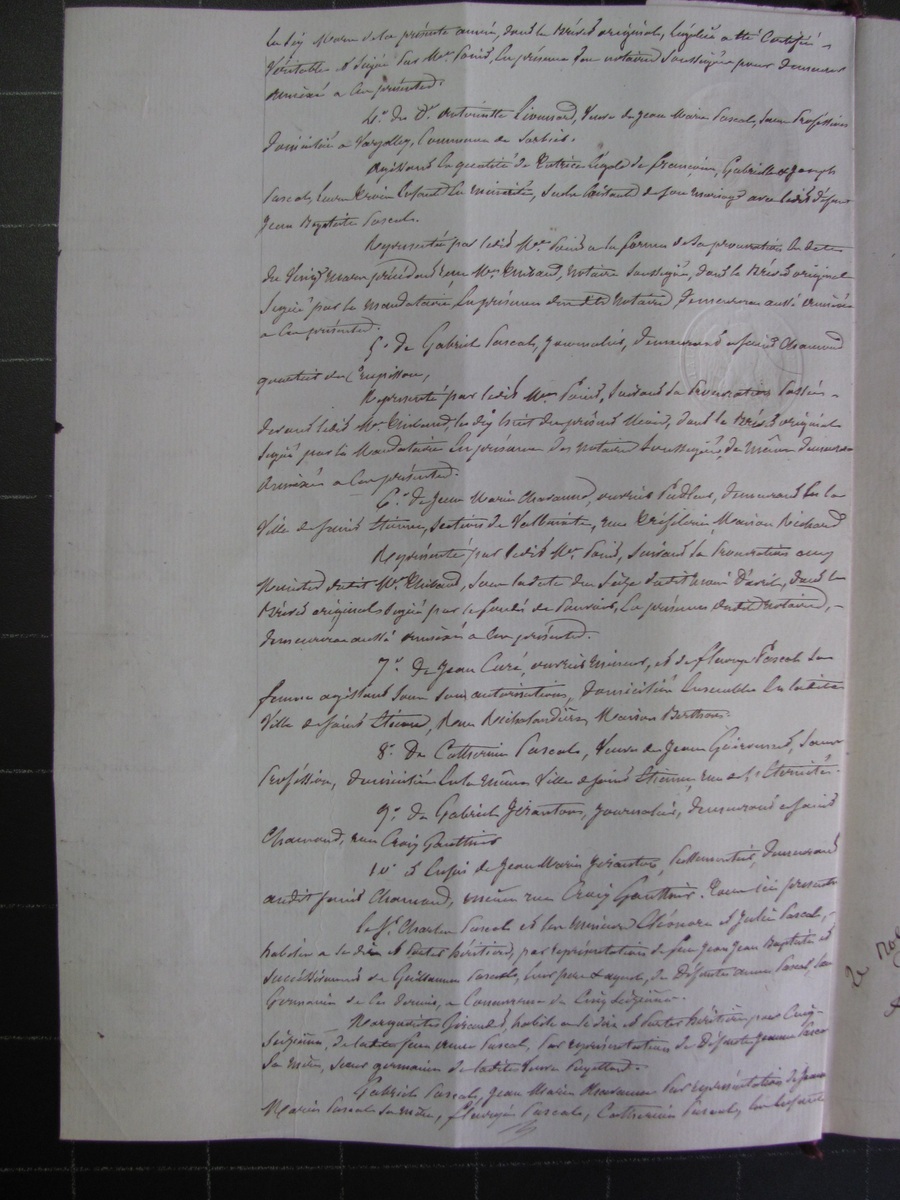 Le dix Mars de la présente année, dont le Brévet original, a été Certifié
Véritable & signé par Mr. Paris, en présence du notaire soussigné pour demeurer
annexé a Ces présentes.
4°. de De. Antoinette Veuve de Jean Marie Pascal, sans Profession
domiciliée a Commune de
Agissant en qualité de Tutrice légale de Gabrielle & Joseph
Pascal, leurs trois Enfants En minorité, de son mariage avec ledit défunt
Jean Baptiste Pascal.
Représentée par ledit Me. Paris a la forme de sa procuration En date
du Vingt Mars précédent, reçu Me. Thibaud, notaire soussigné, dont le Brévet original
signé par le mandataire, En présence dudit notaire, demeurera aussi annexé
a Ces présentes.
5°. de Gabriel Pascal, Journalier, demeurant a Saint Chamond
quartier du
Représenté par ledit Me. Paris, Suivant sa Procuration Passée
devant ledit Me. Thibaud, le dix huit du présent Mois, dont le Brévet original
signé par le Mandataire En présence du notaire soussigné, de même demeurera
Annexé a Ces présentes.
6°. de Jean Marie Chavanne, ouvrier Pudleur, demeurant En la
Ville de Saint Etienne, Section de Valbenoite, rue Tréfilerie Maison Richard
Représenté par ledit Me. Paris, Suivant sa Procuration aux
Minutes dudit Me. Thibaud, sous la date du Seize dudit mois d'avril, dont le
Brévet original signé par le fondé de Pouvoir, En présence dudit Notaire,
demeurera aussi annexé a Ces présentes.
7°. de Jean Curé, ouvrier Mineur, et de fleurye Pascal sa
femme agissant sous son autorisation, domiciliés Ensemble En ladite
Ville de Saint Etienne, Rue Maison Berthon.
8°. de Catherine Pascal, Veuve de Jean sans
Profession, domiciliée En la même Ville de Saint Etienne, rue de l'Eternité.
9°. de Gabriel Girantons, Journalier, demeurant a Saint
Chamond, rue Croix Gauthier
10° & Enfin de Jean Marie Girantons, demeurant
audit Saint Chamond, même rue Croix Gauthier. Tous Ici présents
Le Sr. Charles Pascal et les mineurs Eléonore & Julie Pascal,
habiles a se dire & Porter héritiers, par représentation de feu Jean Baptiste et
successivement de Guillaume Pascal, leurs père & ayeul, de Défunte Anne Pascal, sœur
Germaine de Ce dernier, a Concurrence de Cinq Seizièmes.
Marguerite Giraud, habile a se dire & Porter héritière pour Cinq
Seizièmes, de ladite feue Anne Pascal, Par représentation de Défunte Jeanne Pascal
Sa mère, sœur germaine de ladite Veuve
Gabriel Pascal, Jean Marie Chavanne Par représentation de Jeanne
Marie Pascal sa mère, Fleurye Pascal, Catherine Pascal, les Enfants